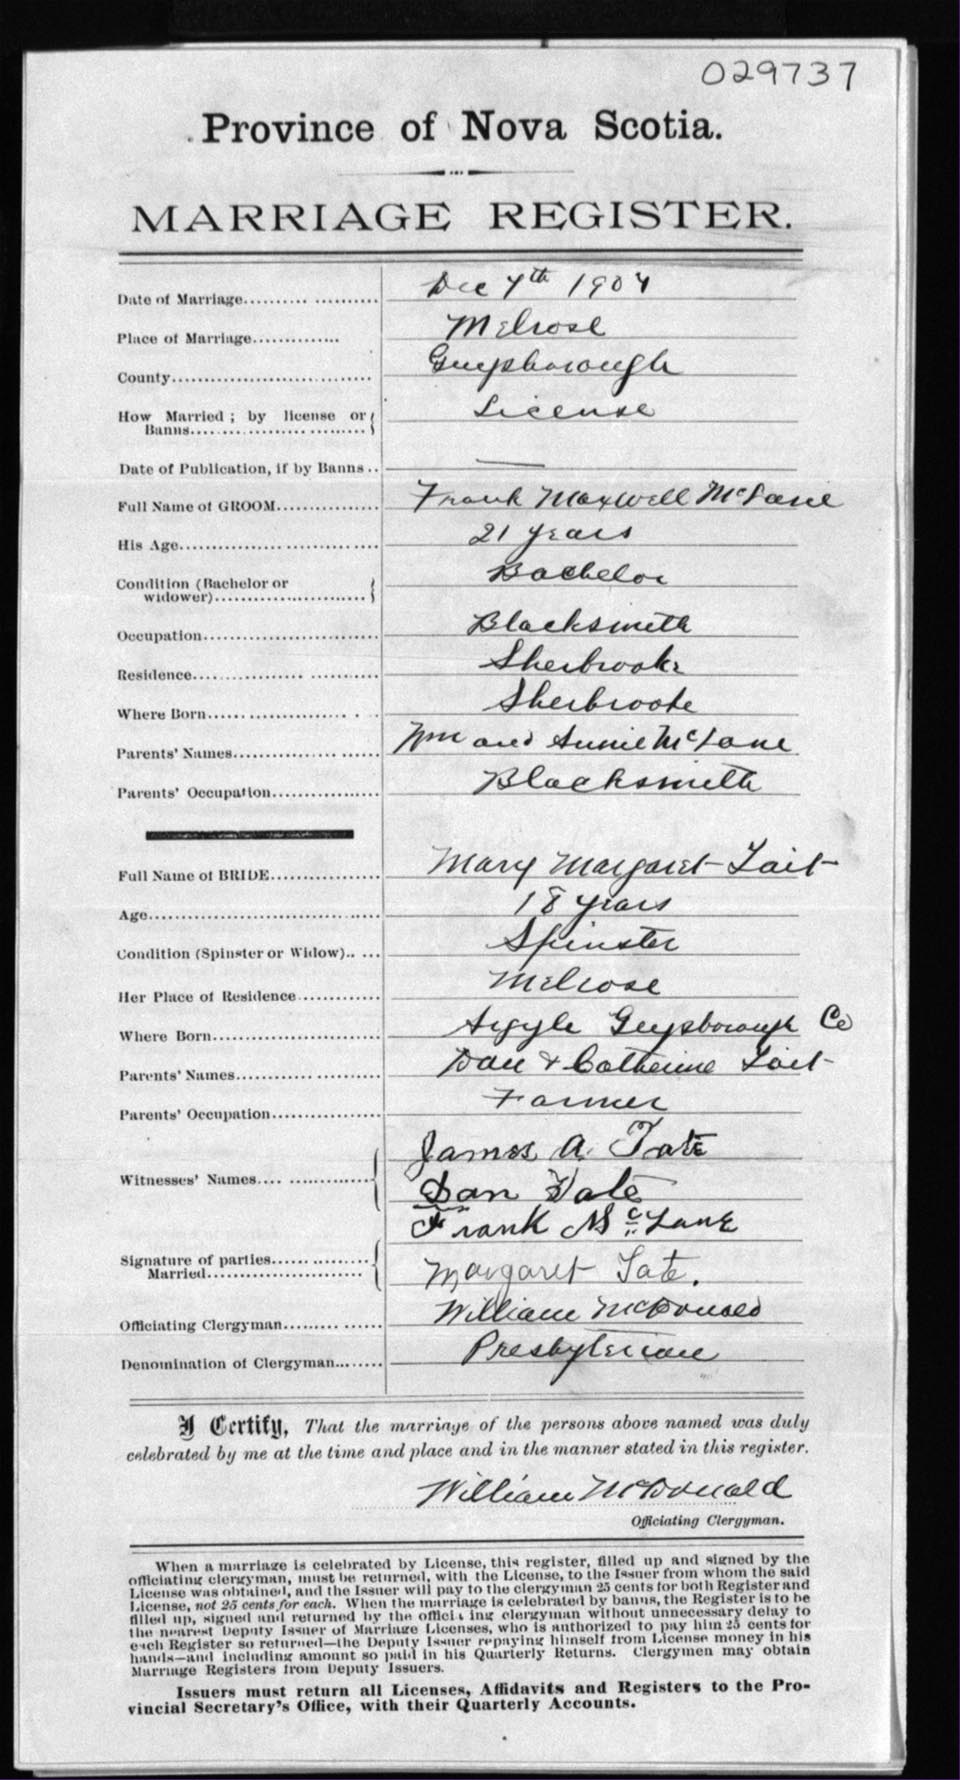 029737
Province of Nova Scotia.
MARRIAGE REGISTER.
Date of Marriage Dec 7th 1907
Place of Marriage Melrose
County Guysborough
How Married ; by license or
Banns License
Date of Publication, if by Banns —
Full Name of GROOM Frank Maxwell McLane
His Age 21 years
Condition (Bachelor or
widower) Bachelor
Occupation Blacksmith
Residence Sherbrooke
Where Born Sherbrooke
Parents' Names Wm and Annie McLane
Parents' Occupation Blacksmith
Full Name of BRIDE Mary Margaret Tait
Age 18 years
Condition (Spinster or Widow) Spinster
Her Place of Residence Melrose
Where Born Argyle Guysborough Co
Parents' Names Dan & Catherine Tait
Parents' Occupation Farmer
James A. Tate
Witnesses' Names
Dan Tate
Frank McLane
Signature of parties
Married
Margaret Tate.
Officiating Clergyman William McDonald
Denomination of Clergyman Presbyterian
I Certify, That the marriage of the persons above named was duly
celebrated by me at the time and place and in the manner stated in this register.
William McDonald
Officiating Clergyman.
When a marriage is celebrated by License, this register, filled up and signed by the
officiating clergyman, must be returned, with the License, to the Issuer from whom the said
License was obtained, and the Issuer will pay to the clergyman 25 cents for both Register and
License, not 25 cents for each. When the marriage is celebrated by banns, the Register is to be
filled up, signed and returned by the offici ing clergyman without unnecessary delay to
the nearest Deputy Issuer of Marriage Licenses, who is authorized to pay him 25 cents for
each Register so returned—the Deputy Issuer repaying himself from License money in his
hands—and including amount so paid in his Quarterly Returns. Clergymen may obtain
Marriage Registers from Deputy Issuers.
Issuers must return all Licenses, Affidavits and Registers to the Pro-
vincial Secretary's Office, with their Quarterly Accounts.